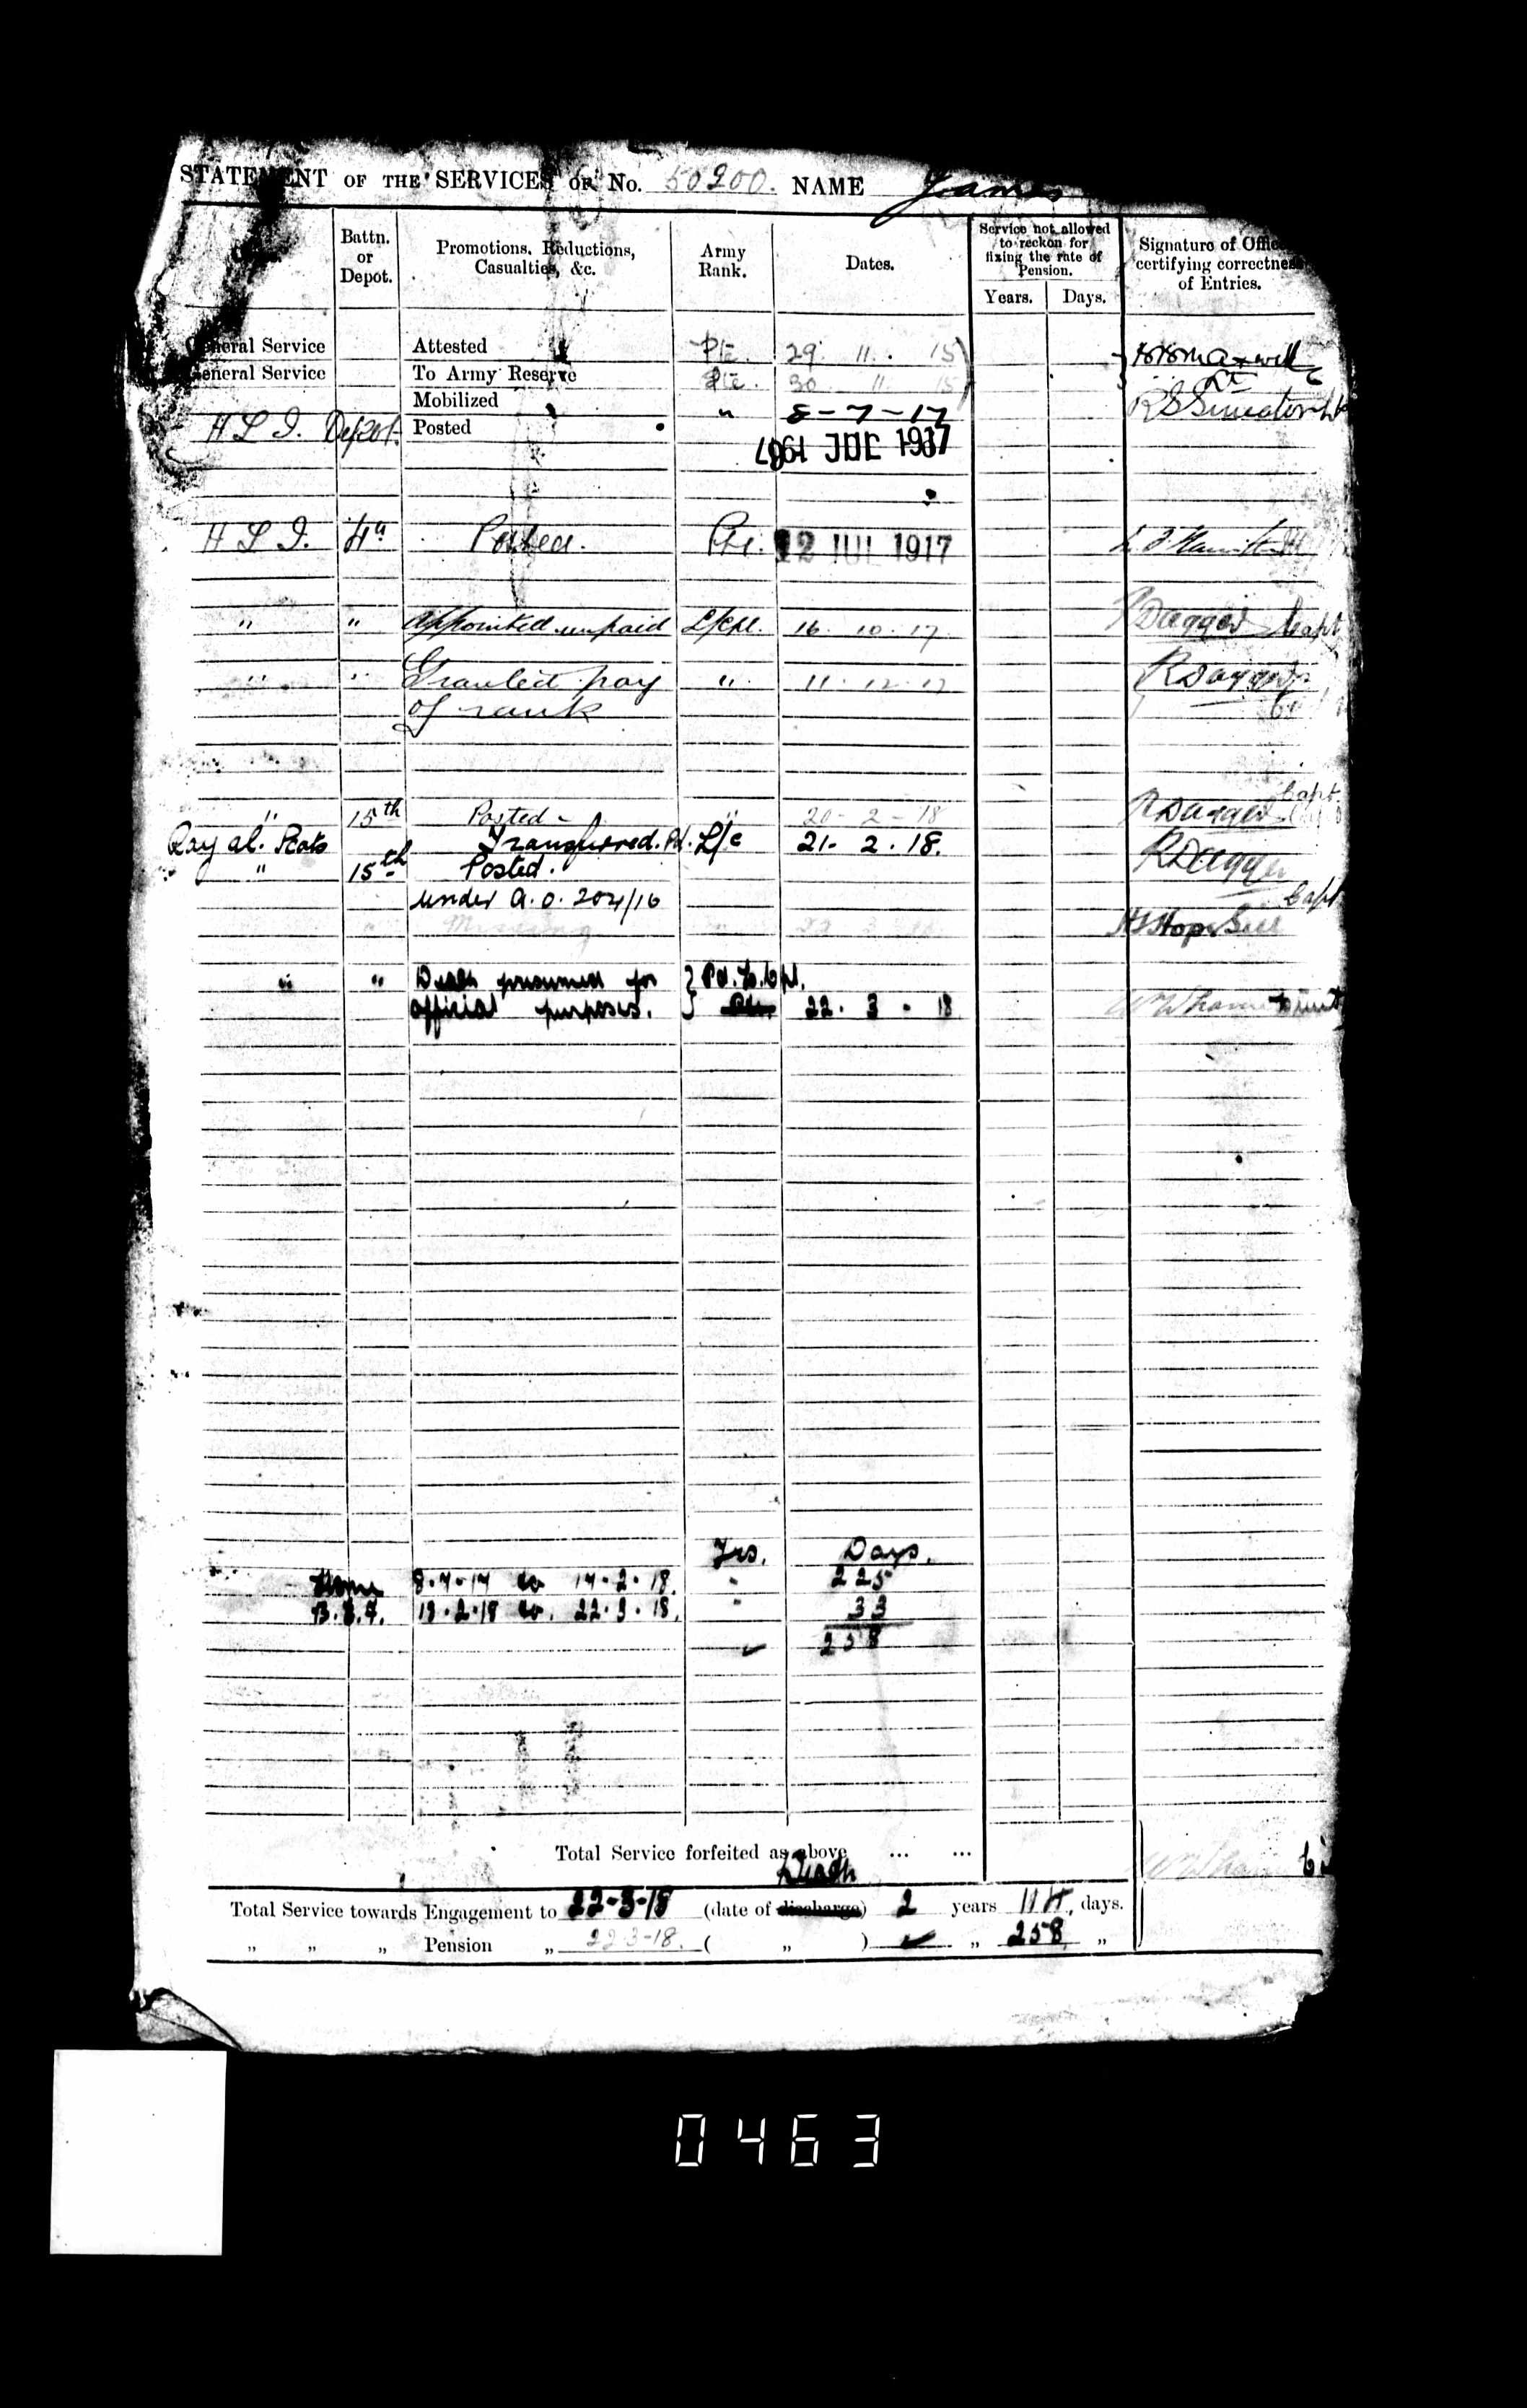 STATEMENT OF THE SERVICES OF No. 50200. NAME James
Battn. or Depot.
Promotions, Reductions, Casualties, &c.
Army Rank.
Dates.
Service not allowed to reckon for fixing the rate of Pension.
Years. Days.
Signature of Office certifying correctness of Entries.
General Service Attested Pte. 29. 11. 15 Maxwell
General Service To Army Reserve Pte. 30 11 15 Lt
Mobilized " 8-7-17
H L I. Depot. Posted JUL 1917
H L I. 4th Posted. Pte. 12 JUL 1917
" " Appointed unpaid L/Cpl. 16. 10. 17 R Dagger Capt
" " Granted pay " 11. 12. 17 R Dagger
of rank
" 15th Posted - " 20-2-18 R Dagger Capt.
Royal Scots Transferred. Pd. L/c 21. 2. 18. R Dagger
" 15th Posted. Capt
under A.O. 204/16
Missing
" " Death presumed for } Pd. L. Cpl.
official purposes. } 22. 3 - 18
Yrs. Days.
Home 8.7.17 to 17.2.18. " 225
B.E.F. 18.2.18 to. 22.3.18. " 33
258
Total Service forfeited as above ... ...
Death
Total Service towards Engagement to 22-3-18 (date of discharge) 2 years 114, days.
„ „ „ Pension „ 22-3-18. ( „ ) „ 258 „
0463